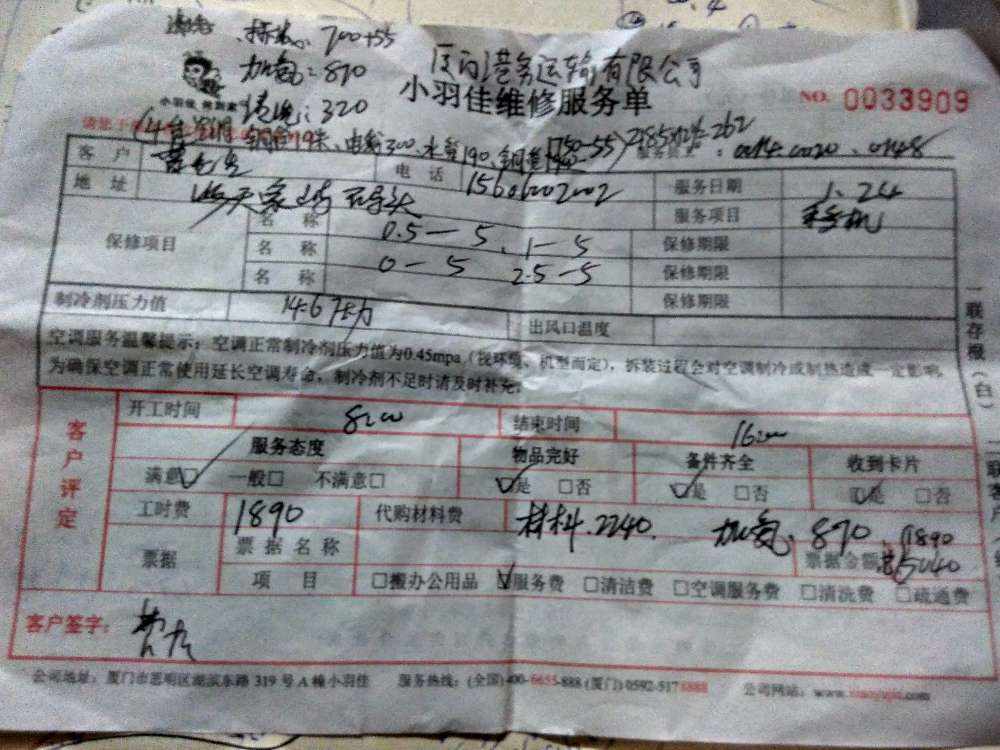 700+55
加氨：870
厦门港务运输有限公司
小羽佳 做到家
清洗：320
小羽佳维修服务单
NO. 0033909
14台空调 铜管19米、电缆300、水管190、
客户
电话
15606002002
服务日期
1.24
地址
服务项目
保修项目
名称
0.5－5、1－5
保修期限
名称
0－5 2.5－5
保修期限
名称
保修期限
制冷剂压力值
出风口温度
空调服务温馨提示：空调正常制冷剂压力值为0.45mpa（视环境、机型而定），拆装过程会对空调制冷或制热造成一定影响，
为确保空调正常使用延长空调寿命，制冷剂不足时请及时补充。
一联存根（白）
客户评定
开工时间
8:00
结束时间
16:00
服务态度
物品完好
备件齐全
收到卡片
满意□ 一般□ 不满意□
是 □否
是 □否
是 □否
工时费
1890
代购材料费
材料.2240. 加氨、870、1890
票据
票据名称
票据金额
总5040
项目
□搬办公用品 服务费 □清洁费 □空调服务费 □清洗费 □疏通费
客户签字：
公司地址：厦门市思明区湖滨东路 319 号 A 幢小羽佳
服务热线：(全国)400-6655-888 (厦门) 0592-5178888
公司网站：www.xiaoyujia.com